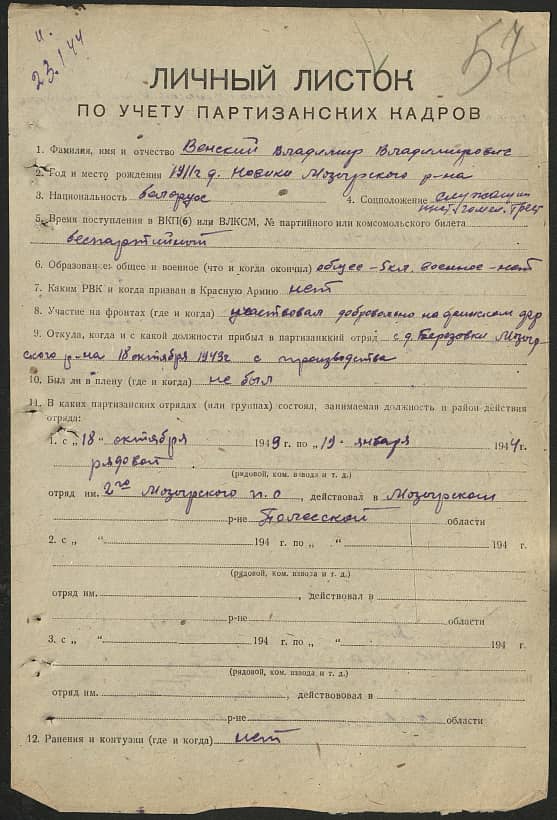 и.
23.1.44
57
ЛИЧНЫЙ ЛИСТОК
ПО УЧЕТУ ПАРТИЗАНСКИХ КАДРОВ
1. Фамилия, имя и отчество Венский Владимир Владимирович
2. Год и место рождения 1911 г д. Новики Мозырского р-на
3. Национальность белорус 4. Соцположение служащий
гомел. трест
5. Время поступления в ВКП(б) или ВЛКСМ, № партийного или комсомольского билета
беспартийный
6. Образование общее и военное (что и когда окончил) общее - 5 кл. военное - нет
7. Каким РВК и когда призван в Красную Армию нет
8. Участие на фронтах (где и когда) участвовал добровольно на финском
9. Откуда, когда и с какой должности прибыл в партизанкий отряд с д. Березовки Мозыр-
ского р-на 18 октября 1943 г с производства
10. Был ли в плену (где и когда) не был
11. В каких партизанских отрядах (или группах) состоял, занимаемая должность и район действия
отряда:
1. с „18" октября 1943 г. по „19" января 1944 г.
рядовой
(рядовой, ком. взвода и т. д.)
отряд им. 2го Мозырского п. о, действовал в Мозырском
р-не Полесской области
2. с „ " 194 г. по „ " 194 г.
(рядовой, ком. взвода и т. д.)
отряд им. , действовал в
р-не области
3. с „ " 194 г. по „ " 194 г.
(рядовой, ком. взвода и т. д.)
отряд им. , действововал в
р-не области
12. Ранения и контузии (где и когда) нет